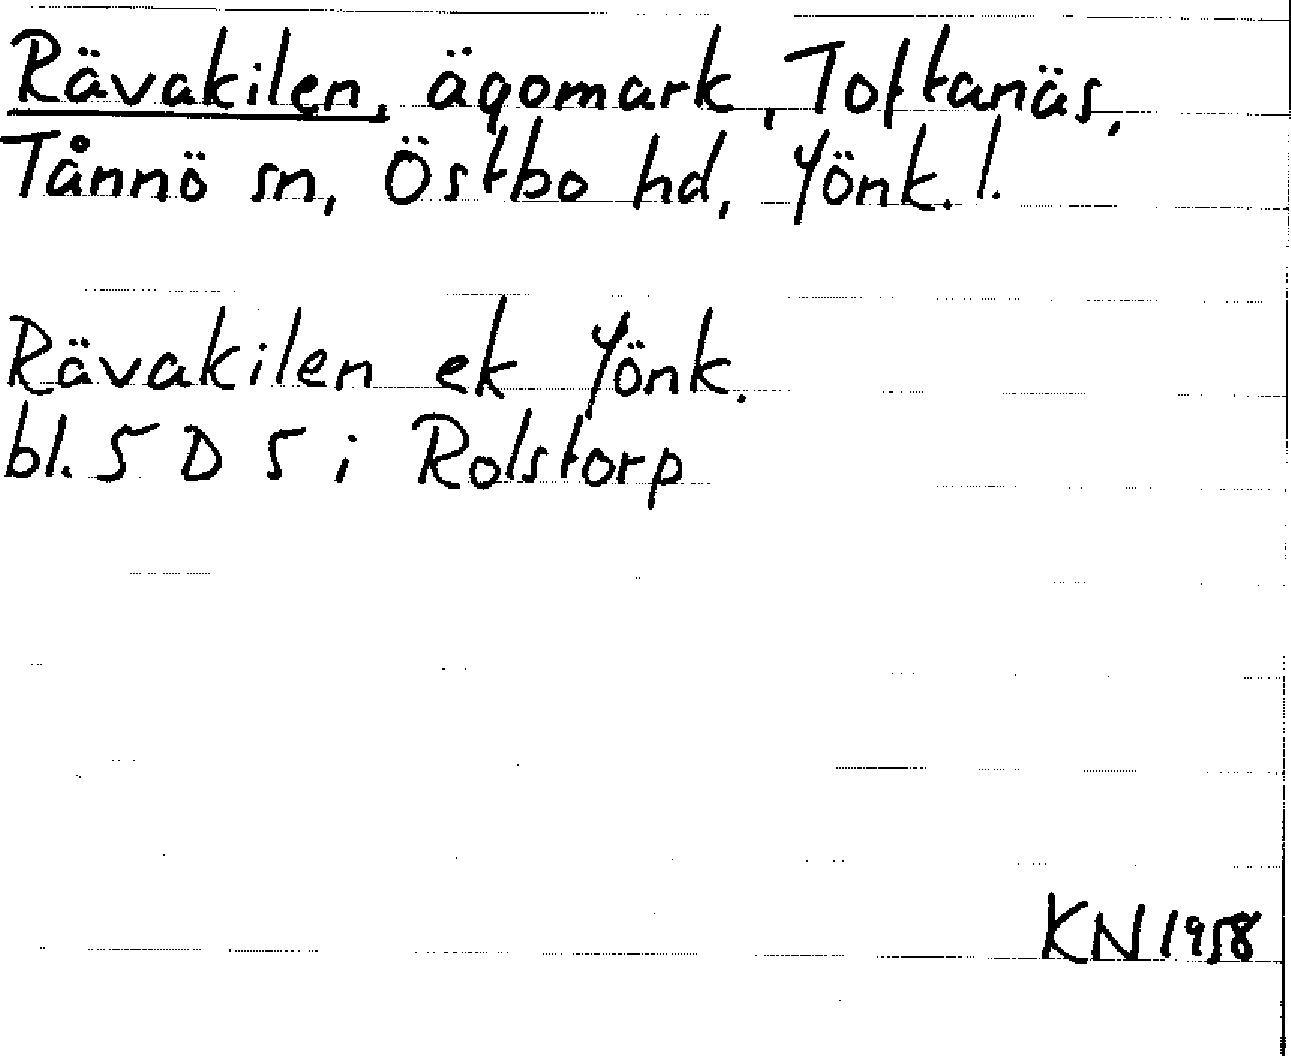 Rävakilen, ägomark, Toftanäs,
Tånnö sn, Östbo hd, Jönk. l.
Rävakilen ek Jönk.
bl. 5 D 5 i Rolstorp
KN 1958